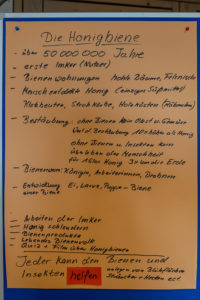 Die Honigbiene
- über 50 000 000 Jahre
- erste Imker (Nutzer)
- Bienenwohnungen hohle Bäume, Felsnische
- Honig einziges Süßmittel
Klotzbeuten, Strohkörbe, Holzkästen
- Bestäubung: ohne Bienen kein Obst u. Gemüse
Wald Bestäubung höher als Honig
ohne Bienen u. Insekten kein
Überleben der Menschheit
für 1 kg Honig 3x um die Erde
- Bienenvolk: Königin, Arbeiterinnen, Drohnen
- Entwicklung Ei, Larve, Puppe - Biene
einer Biene
- Arbeiten der Imker
- Honig schleudern
- Bienenprodukte
- Lebendes Bienenvolk
- Quiz + Film über Honigbienen
Jeder kann den Bienen und
Insekten helfen anlegen von Blühflächen
Sträucher + Hecken ect